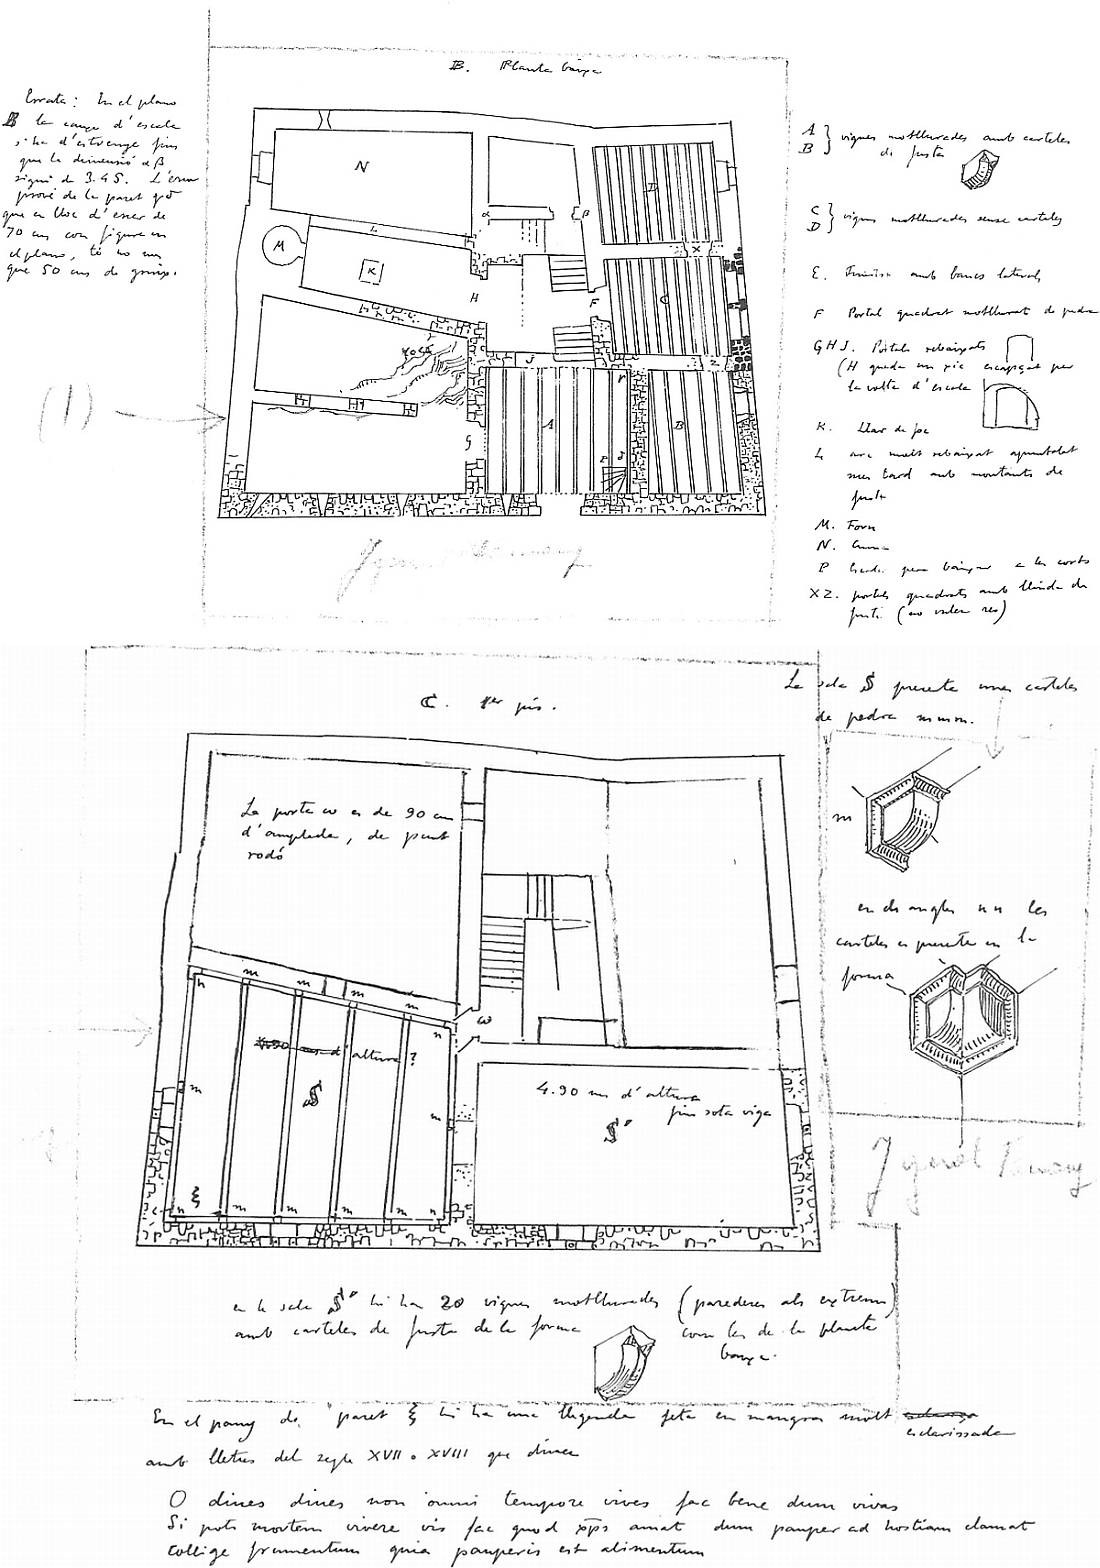 B. Planta baixa
Errata: En el plano
B la caixa d'escala
s'ha d'estrenye fins
que la dimensió αβ
sigui de 3.45. L'error
prové de la paret γδ
que en lloc d'esser de
70 cm com figura en
el plano, té no mes
que 50 cms de gruix.
(1)
N
L
M
K
H
α
β
D
X
C
F
ROCA
J
Z
G
A
γ
B
P
δ
A
B } vigues motllurades amb carteles
de fusta
C
D } vigues motllurades sense carteles
E. Finestra amb bancs laterals
F Portal quadrat motllurat de pedra
G H J. Portals rebaixats
(H queda un xic escapçat per
la volta d'escala
K. Llar de foc
L arc molt rebaixat apuntalat
mes tard amb montants de
fusta
M. Forn
N. Cuina
P Escala per a baixar a les corts
X Z. portes quadrats amb llinda de
fusta (no valen res)
C. 1er pis.
La sala S presenta unes carteles
de pedra m m m.
La porta ω es de 90 cm
d'amplada, de punt
rodó
m
en els angles n n les
carteles es presenten en la
forma
n
m
m
m
m
n
ω
d'altura?
S
m
m
ξ
n
m
m
m
m
n
4.90 ms d'altura
fins sota viga
S'
en la sala S' hi ha 20 vigues motllurades (paredores als extrems)
amb carteles de fusta de la forma
com les de la planta
baixa.
En el pany de paret ξ hi ha una llegenda feta en mangra molt
esclarissada
amb lletres del segle XVII o XVIII que diuen
O dives dives non omni tempore vives fac bene dum vivas
Si pots mortem vivere vis fac quod xps amat dum pauper ad hostiam clamat
collige frumentum quia pauperis est alimentum